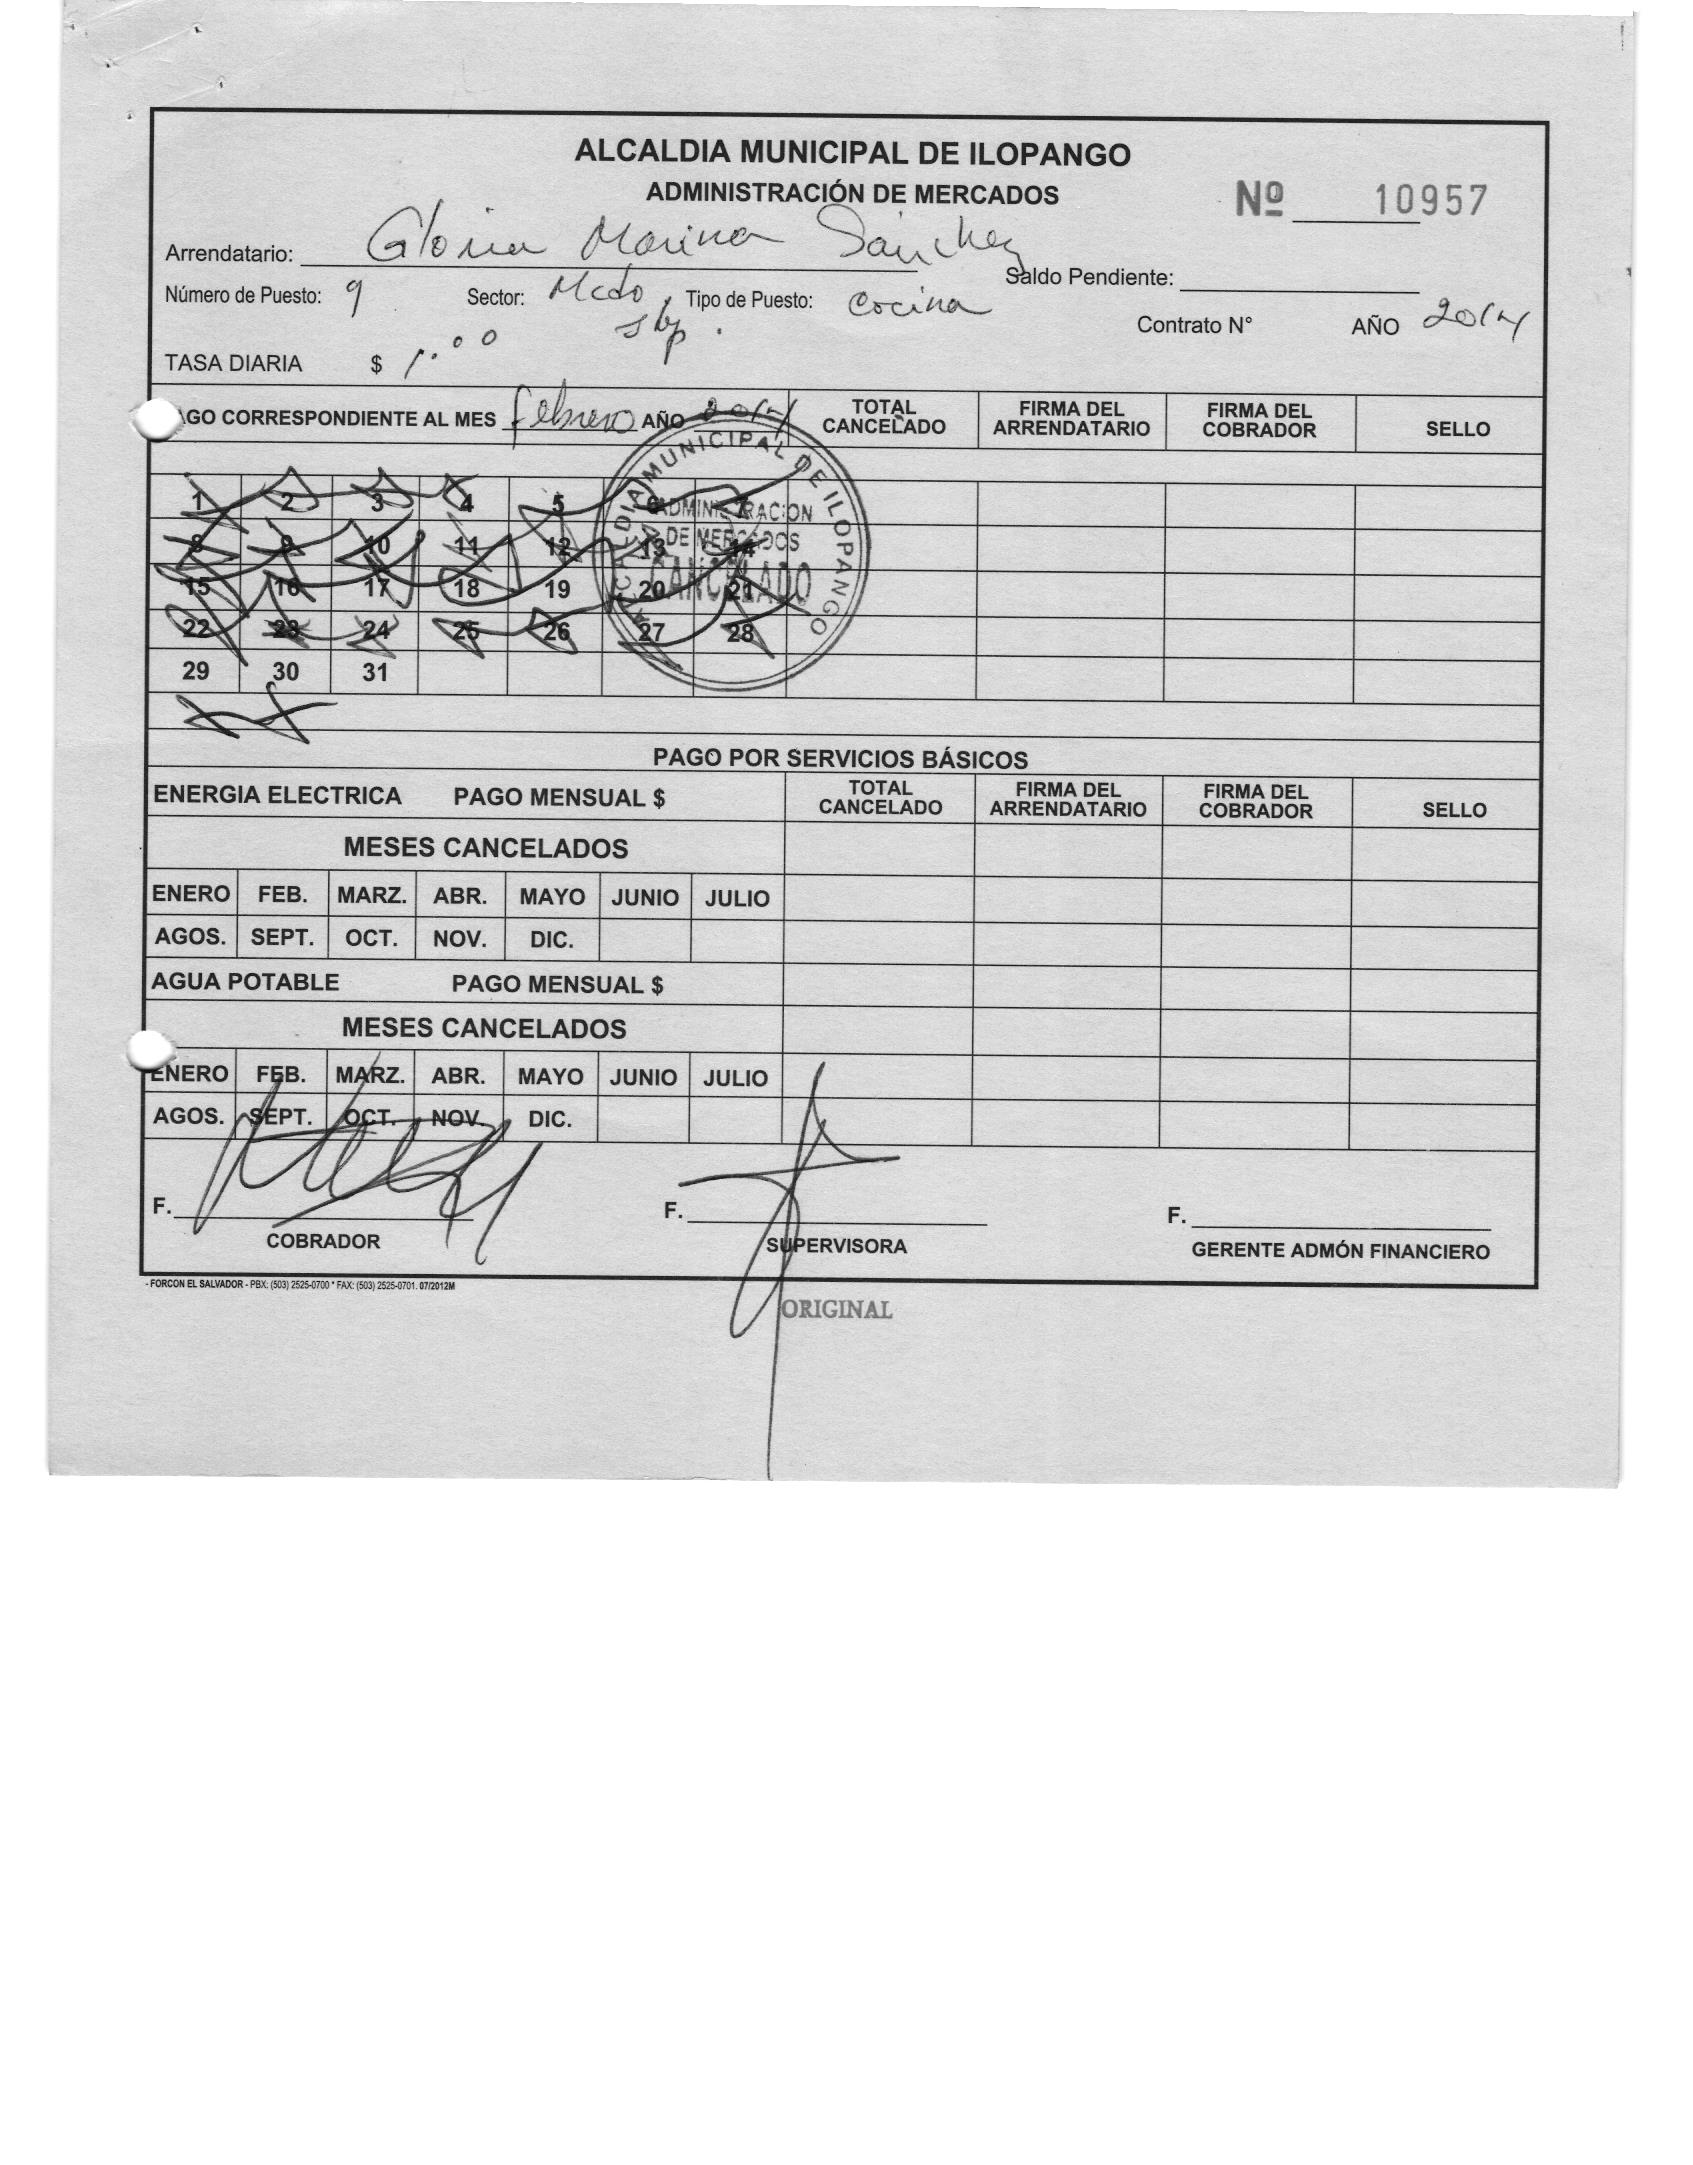 ALCALDIA MUNICIPAL DE ILOPANGO
ADMINISTRACIÓN DE MERCADOS
Nº 10957
Arrendatario: Gloria Marina Sánchez
Saldo Pendiente:
Número de Puesto: 9 Sector: Mcdo Tipo de Puesto: Cocina
Contrato N° AÑO 2014
TASA DIARIA $ 1.00
AGO CORRESPONDIENTE AL MES febrero AÑO 2014 TOTAL CANCELADO FIRMA DEL ARRENDATARIO FIRMA DEL COBRADOR SELLO
ALCALDIA MUNICIPAL DE ILOPANGO
ADMINISTRACION
DE MERCADOS
CANCELADO
1 2 3 4 5 6 7
8 9 10 11 12 13 14
15 16 17 18 19 20 21
22 23 24 25 26 27 28
29 30 31
PAGO POR SERVICIOS BÁSICOS
ENERGIA ELECTRICA PAGO MENSUAL $ TOTAL CANCELADO FIRMA DEL ARRENDATARIO FIRMA DEL COBRADOR SELLO
MESES CANCELADOS
ENERO FEB. MARZ. ABR. MAYO JUNIO JULIO
AGOS. SEPT. OCT. NOV. DIC.
AGUA POTABLE PAGO MENSUAL $
MESES CANCELADOS
ENERO FEB. MARZ. ABR. MAYO JUNIO JULIO
AGOS. SEPT. OCT. NOV. DIC.
F. F. F.
COBRADOR SUPERVISORA GERENTE ADMÓN FINANCIERO
- FORCON EL SALVADOR - PBX: (503) 2525-0700 * FAX: (503) 2525-0701. 07/2012M
ORIGINAL